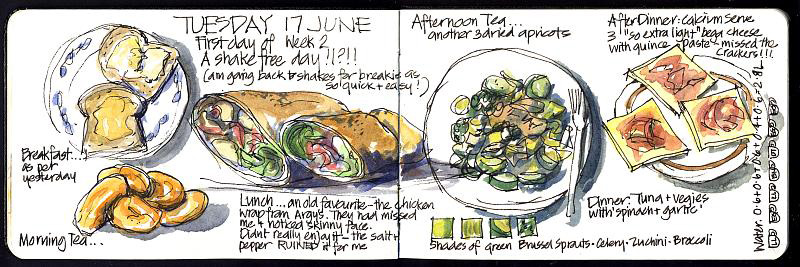 TUESDAY 17 JUNE
First day of Week 2
A shake free day!?!!
(am going back to shakes for breakie as
so quick + easy!)
Breakfast...
as per
yesterday
Morning Tea...
Lunch... an old favourite - the chicken
wrap from Argys. They had missed
me + noticed skinny face.
Didnt really enjoy it - the salt +
pepper RUINED it for me
Afternoon Tea...
another 3 dried apricots
Shades of green Brussel Sprouts · Celery · Zuchini · Broccoli
After Dinner: calcium serve
3 "so extra light" bega cheese
with quince paste - missed the
crackers!!!
Dinner: Tuna + vegies
with 'spinach + garlic'
Water: 0.6+0.6+0.6+0.4+0.6=2.8L